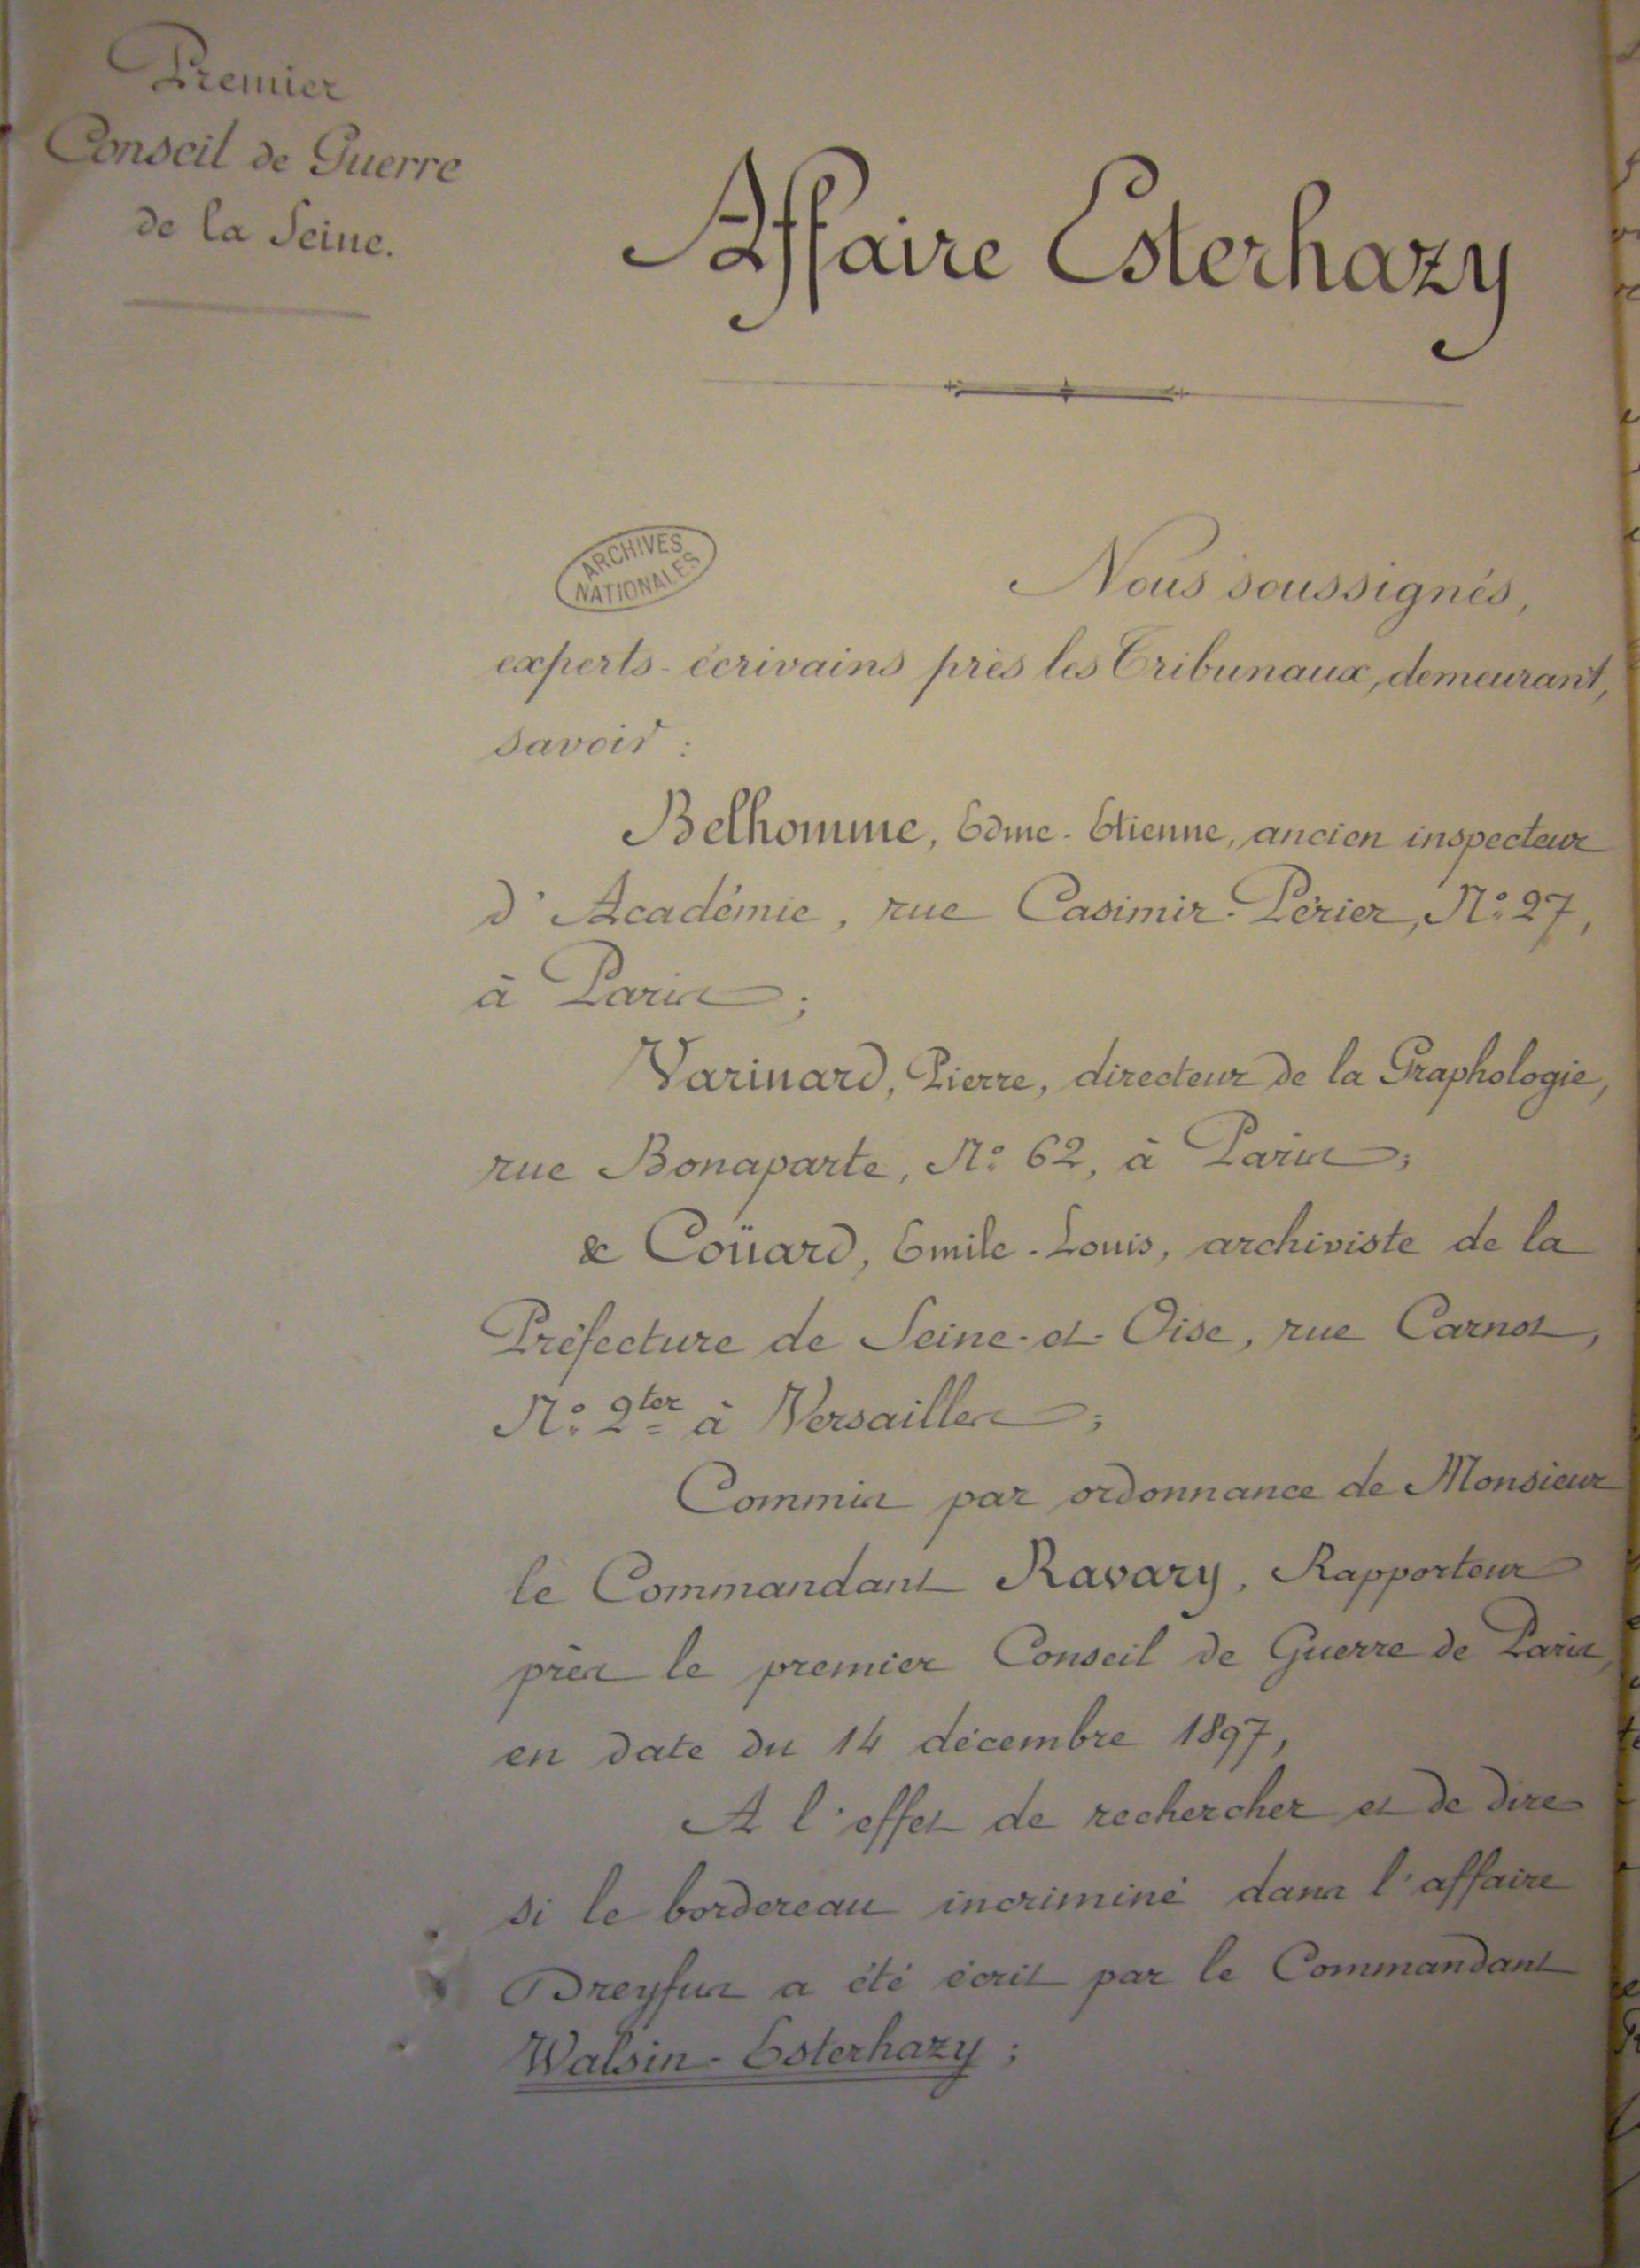 Premier
Conseil de Guerre
de la Seine.
Affaire Esterhazy
ARCHIVES
NATIONALES
Nous soussignés,
experts-écrivains près les Tribunaux, demeurant,
savoir :
Belhomme, Edme-Etienne, ancien inspecteur
d'Académie, rue Casimir-Périer, Nº 27,
à Paris ;
Varinard, Pierre, directeur de la Graphologie,
rue Bonaparte, Nº 62, à Paris ;
& Coüard, Emile-Louis, archiviste de la
Préfecture de Seine-et-Oise, rue Carnot,
Nº 2ter à Versailles ;
Commis par ordonnance de Monsieur
le Commandant Ravary, Rapporteur
près le premier Conseil de Guerre de Paris,
en date du 14 décembre 1897,
A l'effet de rechercher et de dire
si le bordereau incriminé dans l'affaire
Dreyfus a été écrit par le Commandant
Walsin-Esterhazy ;